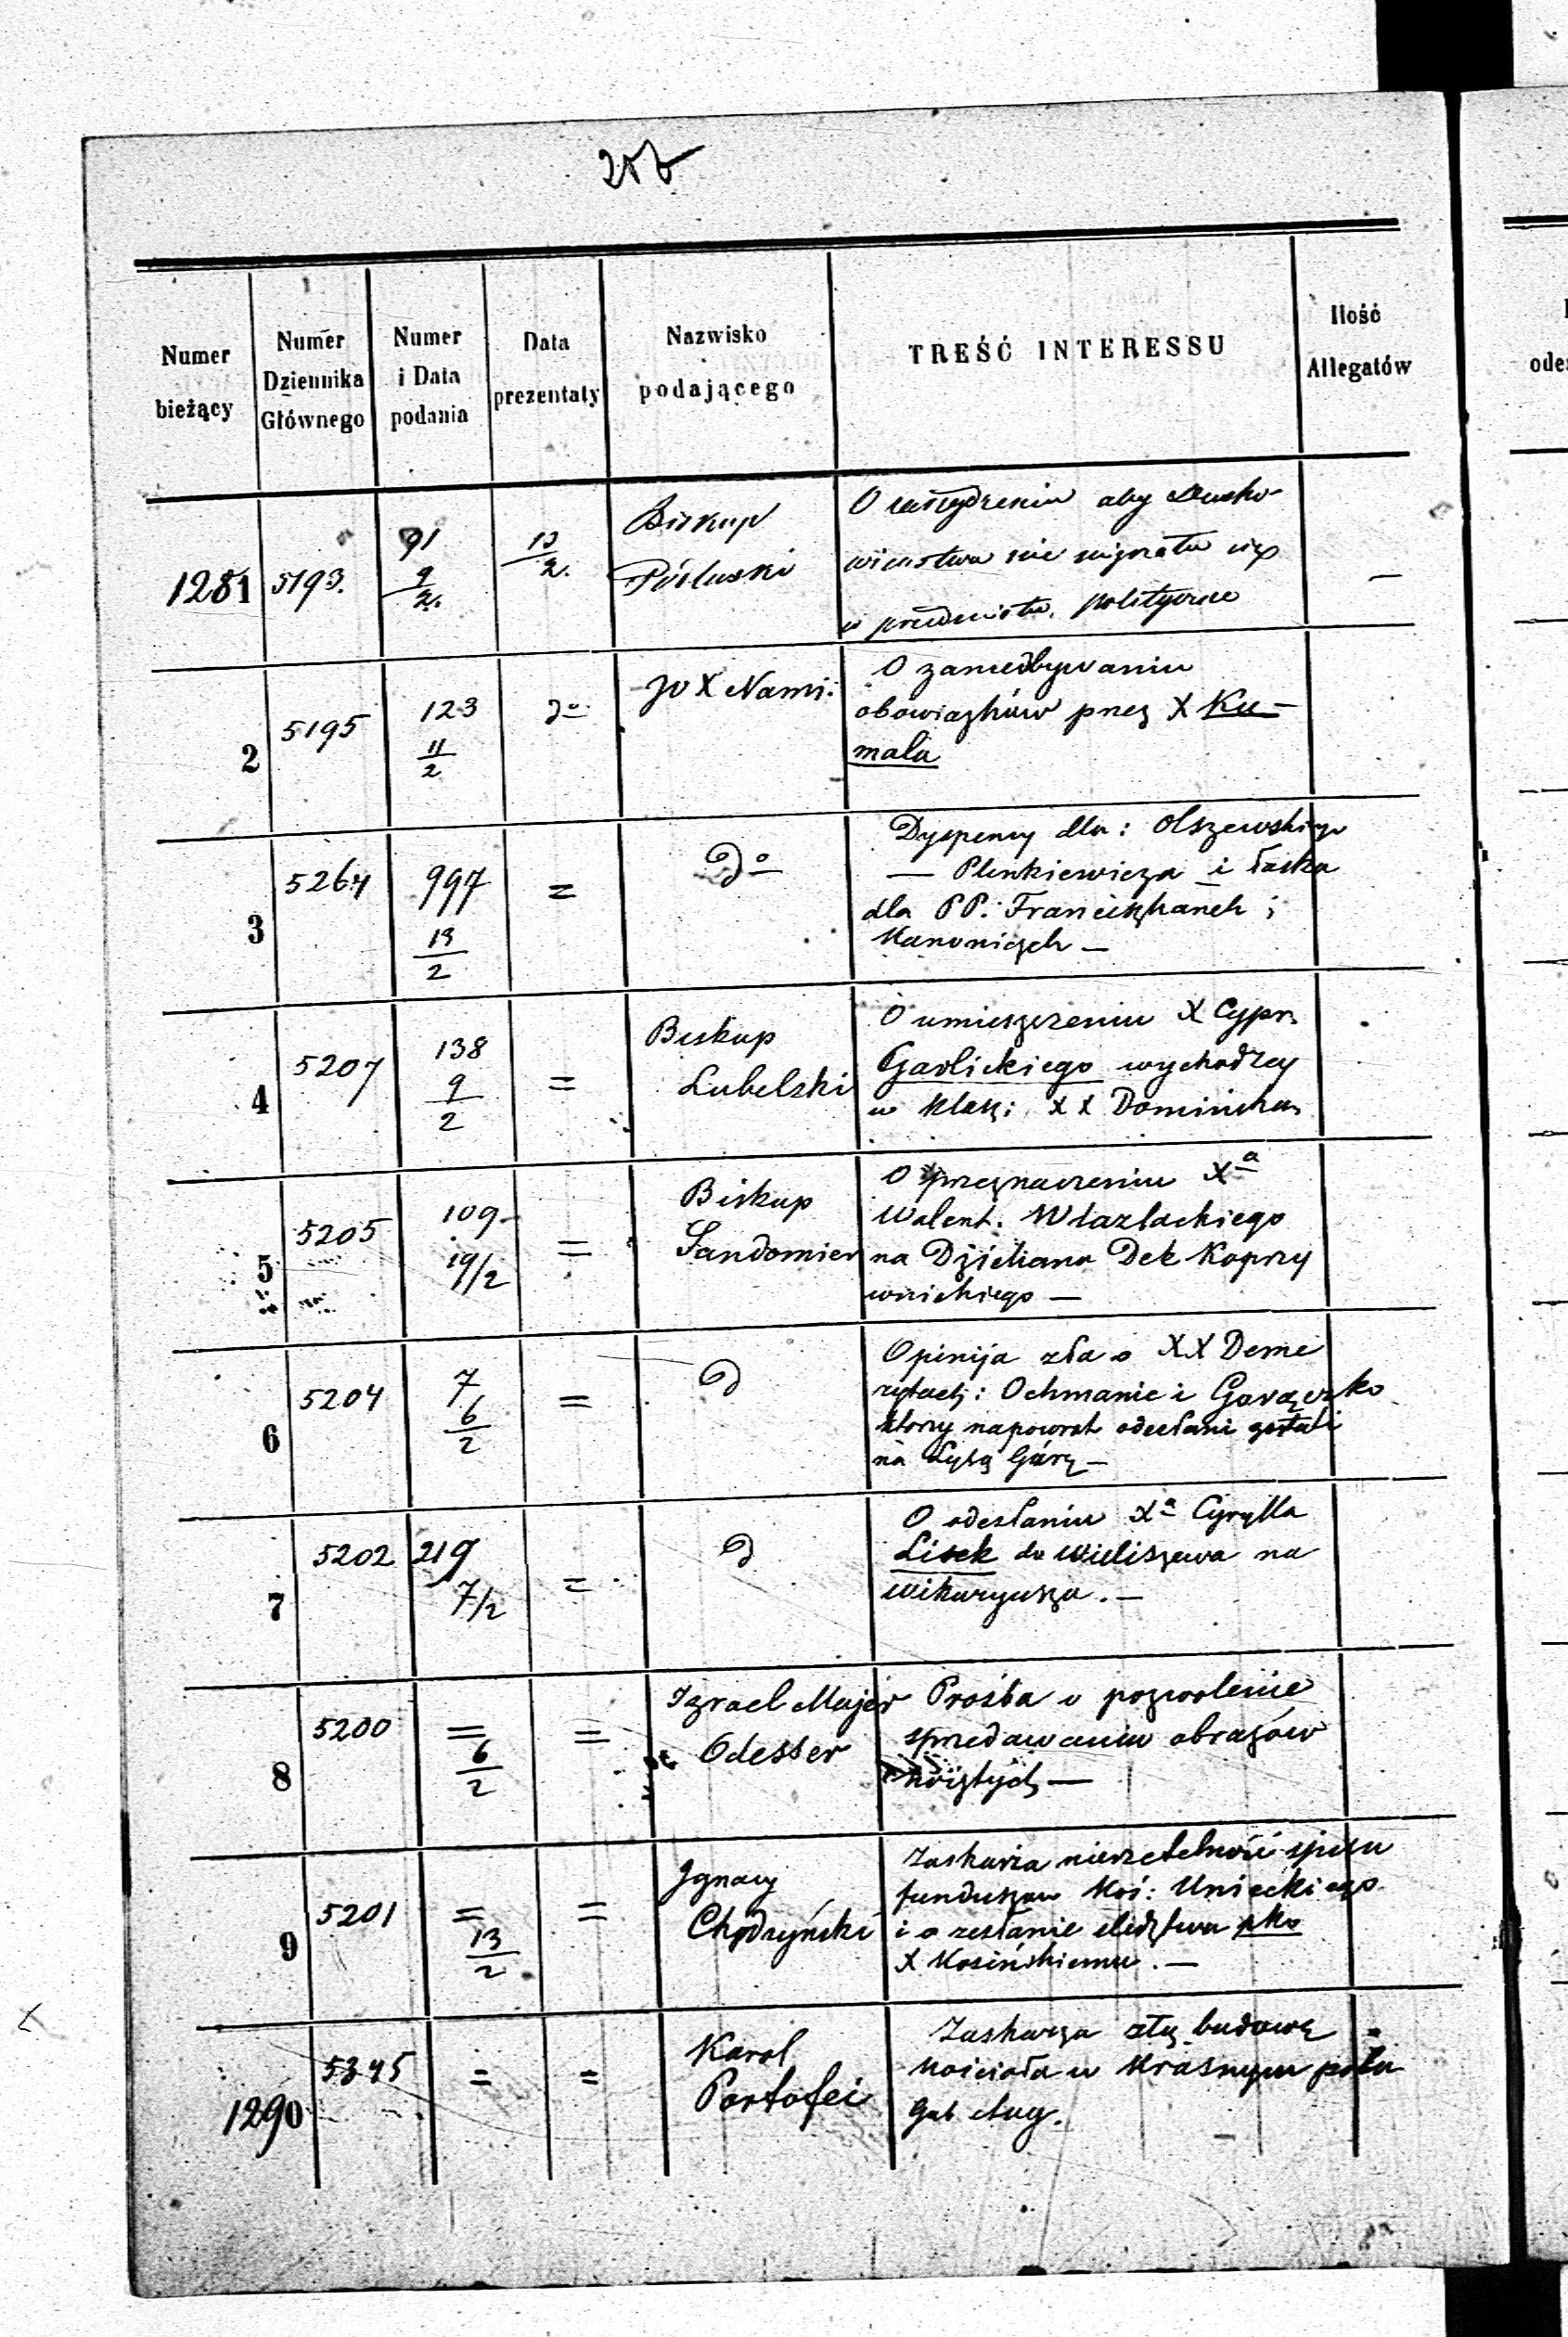 Numer
bieżący
Numer
Dziennika
Głównego
Numer
i Data
podania
Data
prezentaty
Nazwisko
podającego
TREŚĆ INTERESSU
Ilość
Allegatów
1281
5193.
91
9
2.
13
2.
Biskup
Podlaski
O aby Ducho-
wieństwo nie się
w polityczne
—
2
5195
123
11
2
do
JW X Nami.
O zaniedbywaniu
obowiązków przez X Ku-
mala
3
5264
997
13
2
=
Do
Dyspensy dla: Olszewskiego
— Plenkiewicza i łaska
dla PP. Franciszkanek i
Kanoniczek —
4
5207
138
9
2
=
Biskup
Lubelski
O umieszczeniu X Cypr.
Garlickiego wychodzcy
w Klasz: XX Dominika.
5
5205
109
19/2
=
Biskup
Sandomier
O przeznaczeniu Xa
Walent. Wlazlackiego
na Dziekana Dek Koprzy
wnickiego —
6
5204
7
6
2
=
D
Opinija zła o XX Deme
rytach: Ochmanie i Gorączko
ktorzy napowrot odesłani zostali
na Łysą Górę —
7
5202
219
7/2
=
D
O odesłaniu Xa Cyrylla
Lisek do Wieliszewa na
wikaryusza. —
8
5200
=
6
2
=
Izrael Majer
Odesser
Prośba o pozwolenie
sprzedawania obrazów
świętych —
9
5201
=
13
2
=
Ignacy
Chodzyński
Zaskarża nierzetelność spisu
funduszow Koś: Unieckiego
i o zesłanie śledztwa pko
X Kosińskiemu. —
1290
5345
=
=
Karol
Portofei
Zaskarża złą budowę
kościoła w Krasnym polu
Gub Aug.